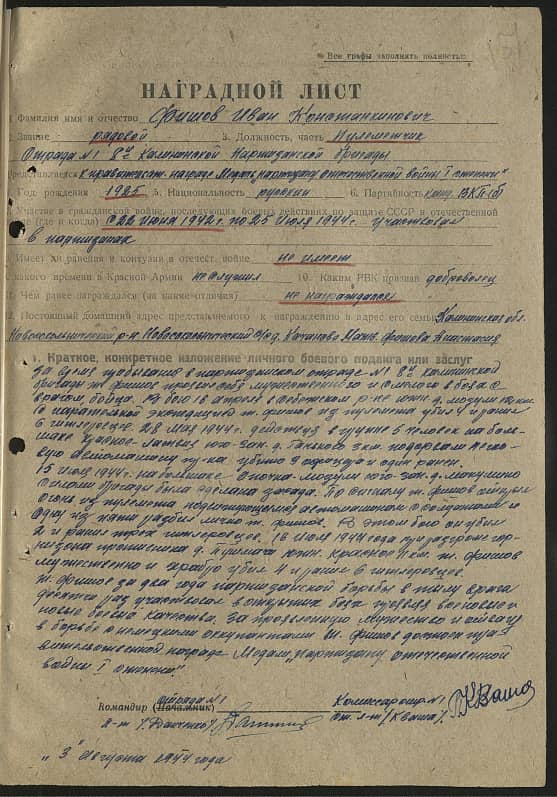 Все графы заполнять полностью
НАГРАДНОЙ ЛИСТ
1. Фамилия имя и отчество Фишов Иван Константинович
2. Звание рядовой 3. Должность, часть Пулеметчик
Отряда №1 8ой Калининской Партизанской бригады
Представляется к правительст. награде Медаль „партизану отечественной войны I степени"
4. Год рождения 1925 5. Национальность русский 6. Партийность канд. ВКП(б)
7. Участие в гражданской войне, последующих боевых действиях по защите СССР и отечественной
войне (где и когда) с 22 июня 1942 г. по 25 июля 1944 г. участвовал
в партизанах
8. Имеет ли ранения и контузии в отечест. войне не имеет
9. С какого времени в Красной Армии не служил 10. Каким РВК призван доброволец
11. Чем ранее награждался (за какие отличия) не награждался
12. Постоянный домашний адрес представляемого к награждению и адрес его семьи Калининская обл.
Новосокольнический р-н Новосокольнический с/с д. Мать Фишова Анастасия
1. Краткое, конкретное изложение личного боевого подвига или заслуг
За время пребывания в партизанском отряде №1 8ой Калининской
бригады т. Фишов проявил себя мужественного и смелого в боях с
врагом бойца. В бою 16 апреля в Себежском р-не южн. д. Мозули
с карательной экспедицией т. Фишов из пулемета убил 4 и ранил
6 гитлеровцев. 28 мая 1944 г. действуя в группе 5 человек на боль-
шаке Красное-Латвия юго-зап. д. 3 км. подорвали легко-
вую автомашину пр-ка убито 9 офицера и один ранен.
15 июля 1944 г. на большаке Опочка-Мозули юго-зап. д. Макушино
силами бригады была сделана засада. По сигналу т. Фишов открыл
огонь из пулемета по движущимся автомашинам с солдатами и
одну из них разбил лично т. Фишов. В этом бою он убил
2 и ранил трех гитлеровцев. 16 июля 1944 года при разгроме гар-
низона противника д. южн. Красное км. т. Фишов
мужественно и храбро убил 4 и ранил 6 гитлеровцев.
т. Фишов за два года партизанской борьбы в тылу врага
десятки раз участвовал в открытых боях проявляя
боевые качества. За проявленную мужество и отвагу
в борьбе с немецкими оккупантами т. Фишов достоин пра-
вительственной награде Медаль „партизану отечественной
войны I степени".
Командир (Начальник) отряда №1
л-т /Даченко/
Комиссар отр. №1
ст. л-т /Кваша/
„3" августа 1944 года